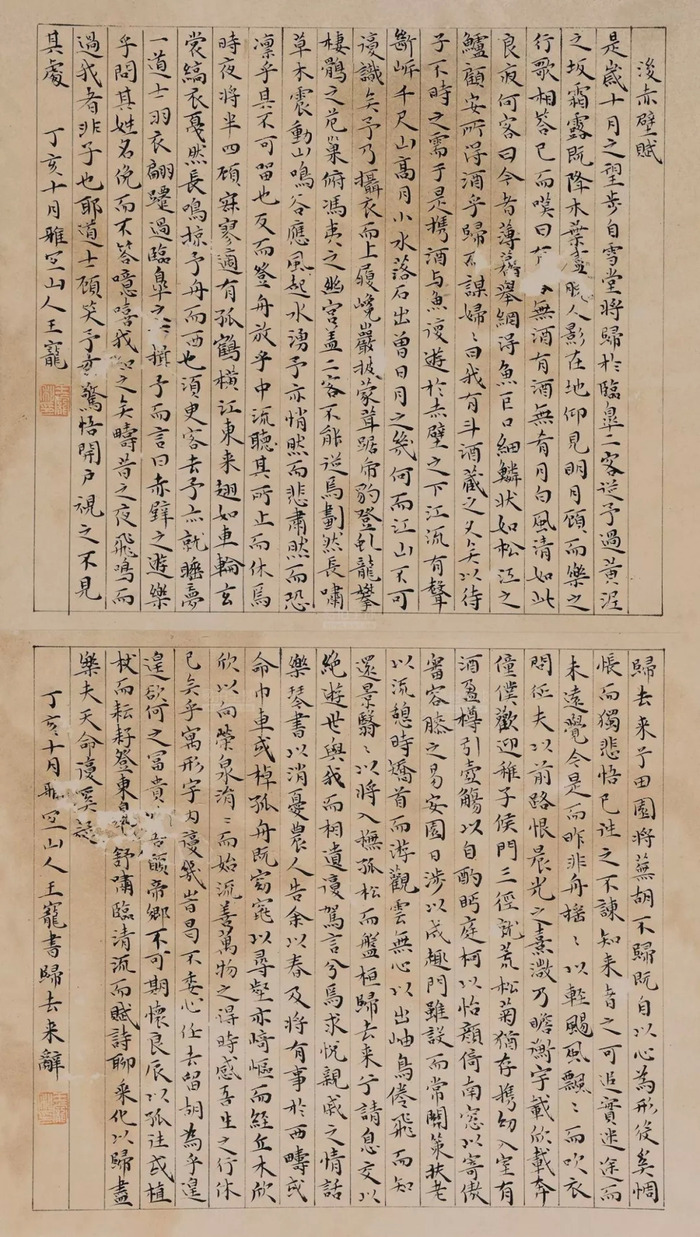 後赤壁賦
是歲十月之望步自雪堂將歸於臨皋二客從予過黃泥
之坂霜露既降木葉盡脫人影在地仰見明月顧而樂之
行歌相答已而嘆曰有無酒有酒無肴月白風清如此
良夜何客曰今者薄暮舉網得魚巨口細鱗狀如松江之
鱸顧安所得酒乎歸而謀婦〻曰我有斗酒藏之久矣以待
子不時之需于是攜酒与魚復遊於赤壁之下江流有聲
斷岸千尺山高月小水落石出曾日月之幾何而江山不可
復識矣予乃攝衣而上履巉巖披蒙茸踞虎豹登虬龍攀
棲鶻之危巢俯馮夷之幽宮蓋二客不能從焉劃然長嘯
草木震動山鳴谷應風起水湧予亦悄然而悲肅然而恐
凜乎其不可留也反而登舟放乎中流聽其所止而休焉
時夜將半四顧寂寥適有孤鶴橫江東来翅如車輪玄
裳縞衣戛然長鳴掠予舟而西也須臾客去予亦就睡夢
一道士羽衣翩躚過臨皋之下揖予而言曰赤壁之遊樂
乎問其姓名俛而不答噫嘻我知之矣疇昔之夜飛鳴而
過我者非子也耶道士顧笑予亦驚悟開戶視之不見
其處 丁亥十月雅宜山人王寵
歸去来兮田園將蕪胡不歸既自以心為形役奚惆
悵而獨悲悟已往之不諫知来者之可追實迷途而
未遠覺今是而昨非舟搖〻以輕颺風飄〻而吹衣
問征夫以前路恨晨光之熹微乃瞻衡宇載欣載奔
僮僕歡迎稚子候門三徑就荒松菊猶存攜幼入室有
酒盈樽引壺觴以自酌眄庭柯以怡顏倚南窓以寄傲
審容膝之易安園日涉以成趣門雖設而常關策扶老
以流憩時矯首而游觀雲無心以出岫鳥倦飛而知
還景翳〻以將入撫孤松而盤桓歸去来兮請息交以
絕遊世與我而相遺復駕言兮焉求悅親戚之情話
樂琴書以消憂農人告余以春及將有事於西疇或
命巾車或棹孤舟既窈窕以尋壑亦崎嶇而經丘木欣
欣以向榮泉涓〻而始流善萬物之得時感吾生之行休
已矣乎寓形宇內復幾時曷不委心任去留胡為乎遑
遑欲何之富貴吾願帝鄉不可期懷良辰以孤往或植
杖而耘耔登東皋舒嘯臨清流而賦詩聊乘化以歸盡
樂夫天命復奚疑
丁亥十月雅宜山人王寵書歸去来辭